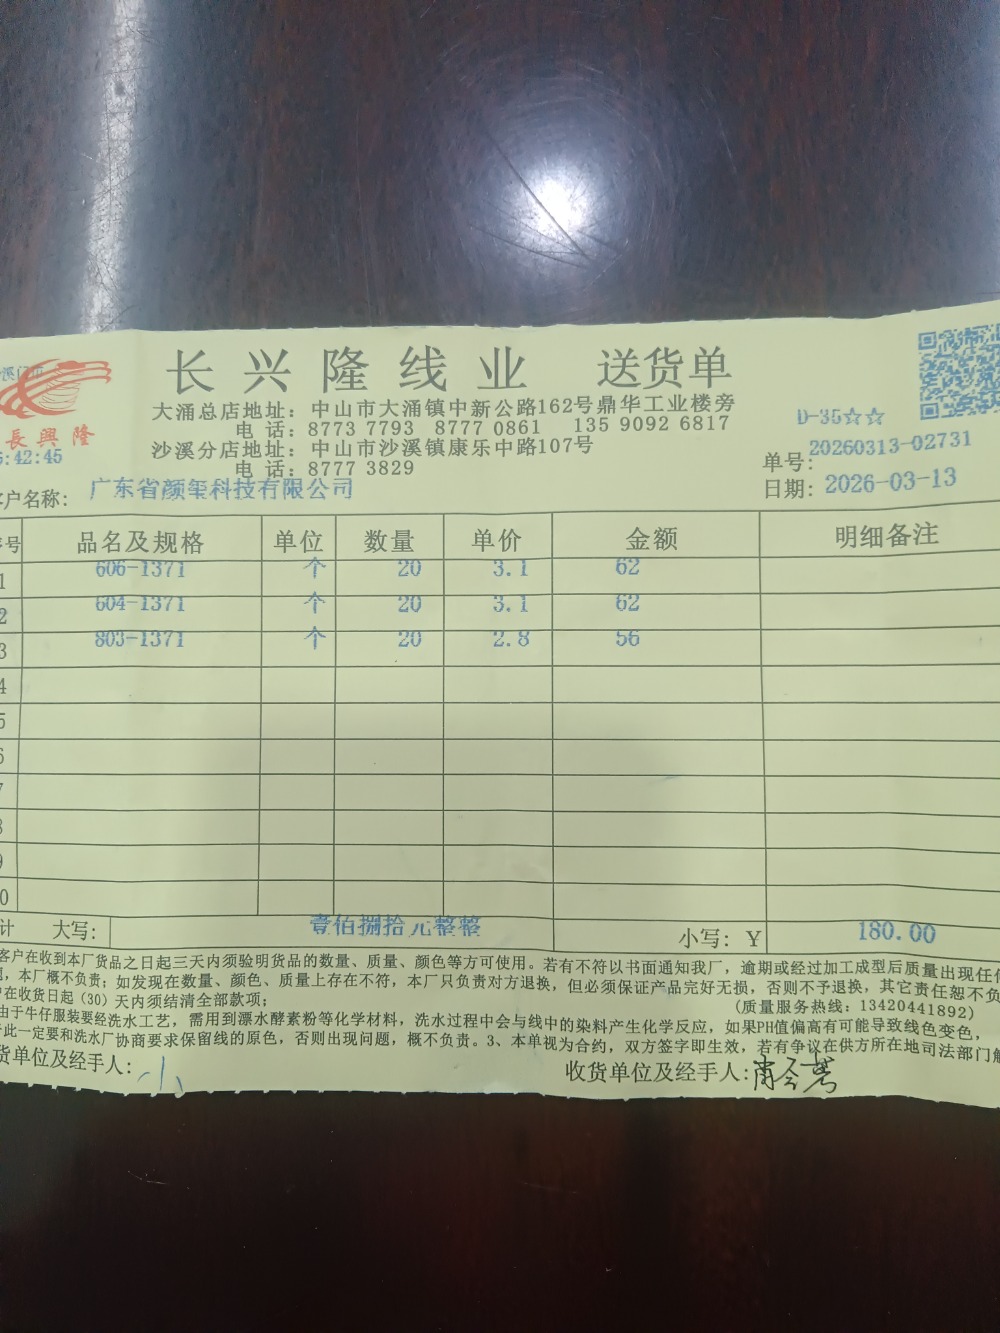 长兴隆线业 送货单
長興隆
大涌总店地址：中山市大涌镇中新公路162号鼎华工业楼旁
电 话：8773 7793 8777 0861 135 9092 6817
沙溪分店地址：中山市沙溪镇康乐中路107号
电 话：8777 3829
D-35☆☆
:42:45
单号：20260313-02731
客户名称：广东省颜玺科技有限公司
日期：2026-03-13
序号 品名及规格 单位 数量 单价 金额 明细备注
1 606-1371 个 20 3.1 62
2 604-1371 个 20 3.1 62
3 803-1371 个 20 2.8 56
4
5
6
7
8
9
0
计 大写： 壹佰捌拾元整整 小写：Y 180.00
客户在收到本厂货品之日起三天内须验明货品的数量、质量、颜色等方可使用。若有不符以书面通知我厂，逾期或经过加工成型后质量出现任何
，本厂概不负责；如发现在数量、颜色、质量上存在不符，本厂只负责对方退换，但必须保证产品完好无损，否则不予退换，其它责任恕不负
户在收货日起（30）天内须结清全部款项；
(质量服务热线：13420441892)
由于牛仔服装要经洗水工艺，需用到漂水酵素粉等化学材料，洗水过程中会与线中的染料产生化学反应，如果PH值偏高有可能导致线色变色，
此一定要和洗水厂协商要求保留线的原色，否则出现问题，概不负责。3、本单视为合约，双方签字即生效，若有争议在供方所在地司法部门解
货单位及经手人：
收货单位及经手人：